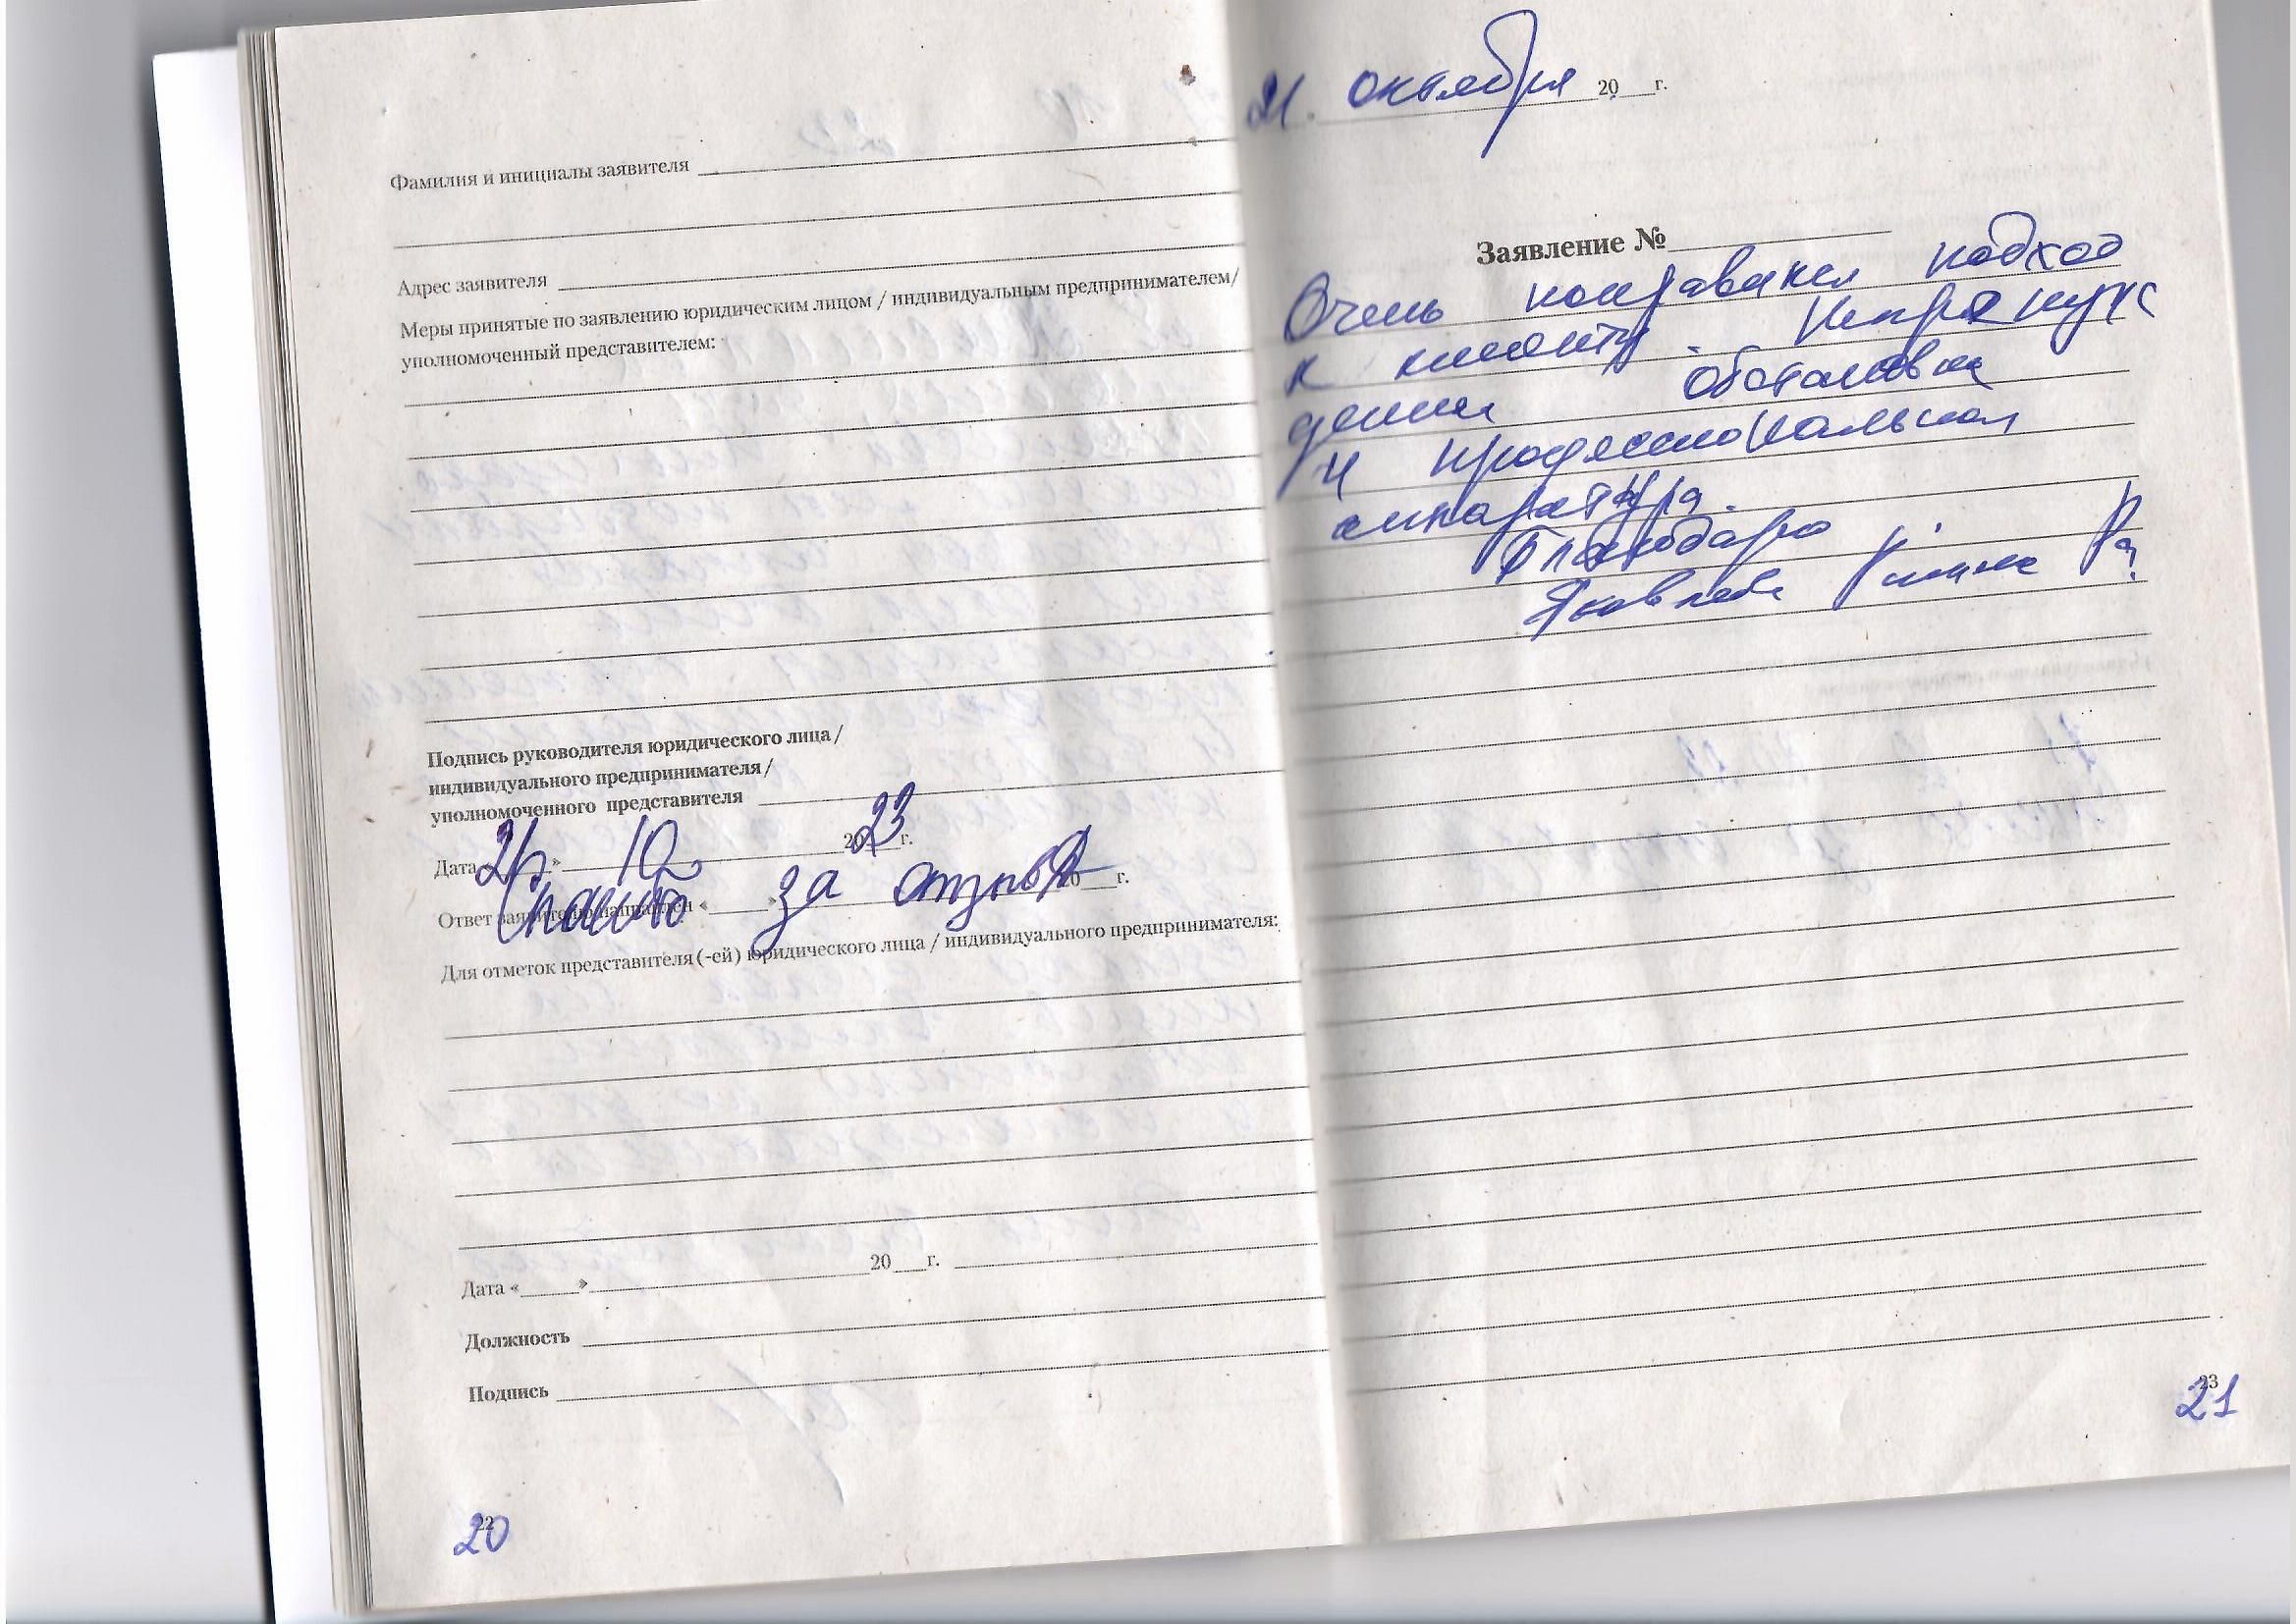 Фамилия и инициалы заявителя
Адрес заявителя
Меры принятые по заявлению юридическим лицом / индивидуальным предпринимателем/
уполномоченный представителем:
Подпись руководителя юридического лица /
индивидуального предпринимателя /
уполномоченного представителя
Дата 21 » 10 2023 г.
Спасибо за отзыв
Ответ заявителю направлен « » 20 г.
Для отметок представителя (-ей) юридического лица / индивидуального предпринимателя:
Дата « » 20 г.
Должность
Подпись
22
20
21. октября 20 г.
Заявление №
Очень понравился подход
к клиенту.
обстановка
и профессиональная
аппаратура.
Благодарю
Яковлева
23
21